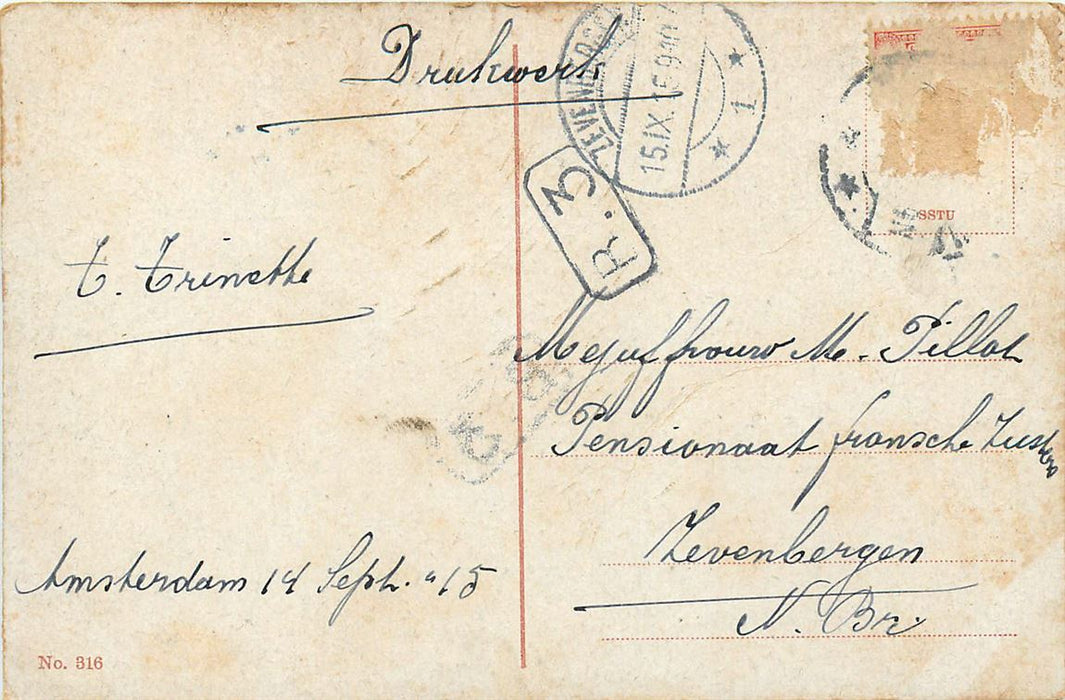 Drukwerk
15.IX.15.9
1
R. 3
SSTU
T. Trinette
Mejuffrouw M. Pillot
Pensionaat fransche Zusters
Zevenbergen
N. Br.
Amsterdam 14 Sept. "15
No. 316